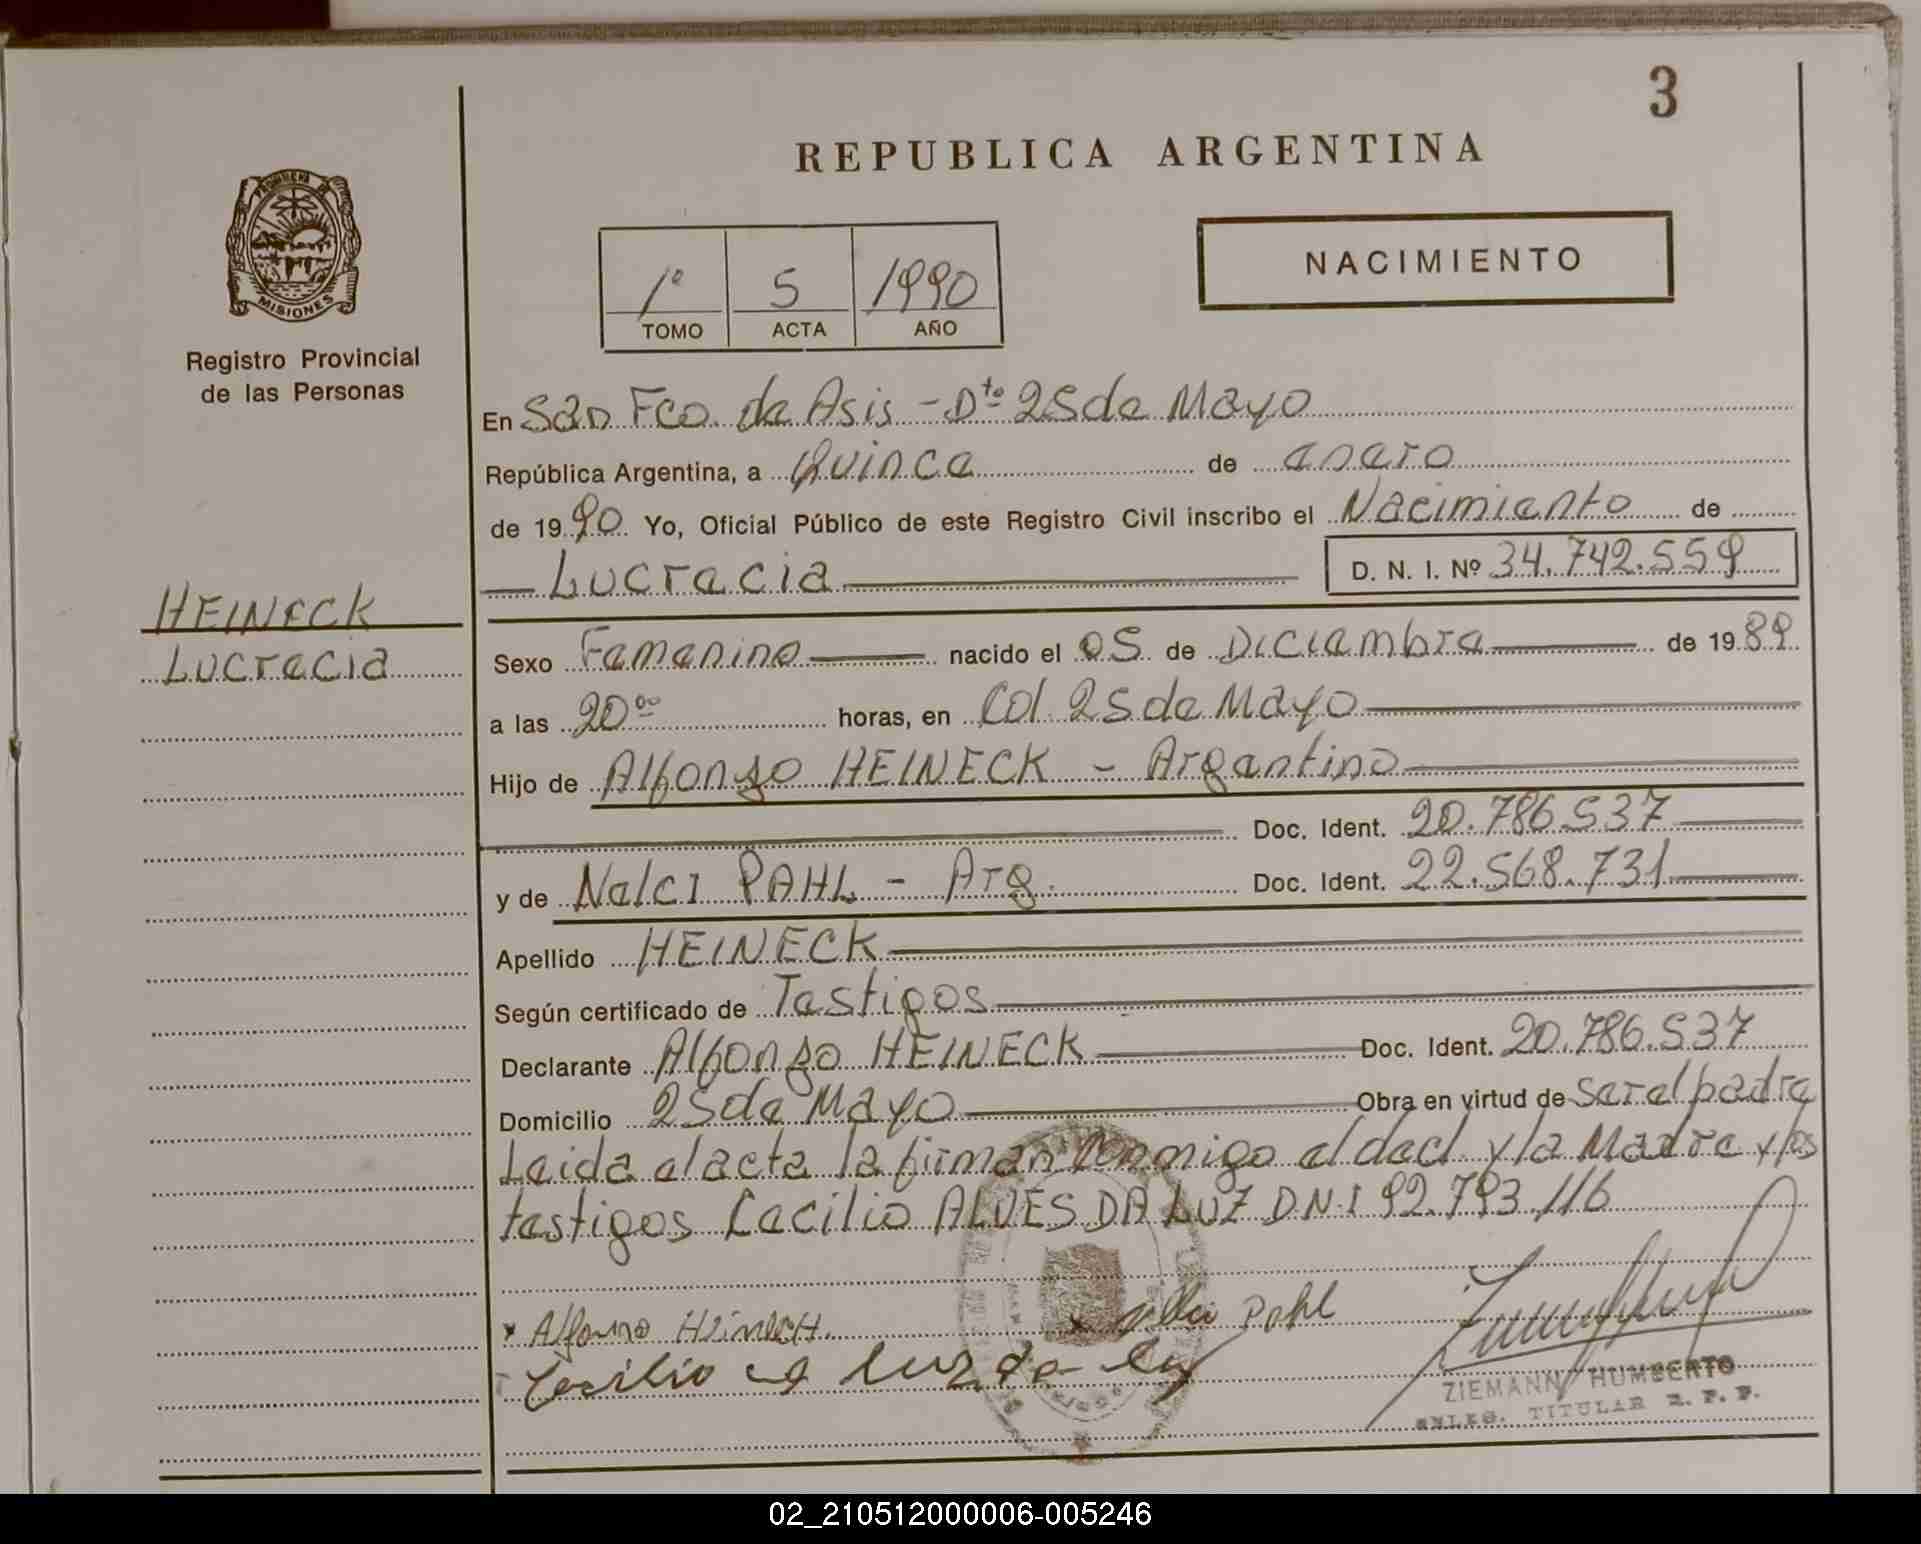 3
REPUBLICA ARGENTINA
PROVINCIA DE
MISIONES
Registro Provincial
de las Personas
1º 5 1990
TOMO ACTA AÑO
NACIMIENTO
En San Fco. de Asis - Dto 25 de Mayo
República Argentina, a Quince de enero
de 1990 Yo, Oficial Público de este Registro Civil inscribo el Nacimiento de
Lucrecia D. N. I. Nº 34.742.559
HEINECK
Lucrecia
Sexo Femenino nacido el 05 de Diciembre de 1989
a las 20 00 horas, en Col. 25 de Mayo
Hijo de Alfonso HEINECK - Argentino
Doc. Ident. 20.786.537
y de Nelci PAHL - Arg. Doc. Ident. 22.568.731
Apellido HEINECK
Según certificado de Testigos
Declarante Alfonso HEINECK Doc. Ident. 20.786.537
Domicilio 25 de Mayo Obra en virtud de ser el padre
Leida el acta la firman conmigo el decl. y la Madre y los
testigos Cecilio ALVES DA LUZ D.N.I 92.793.116
x Alfonso Heineck. x Pohl
Cecilio luz
ZIEMANN HUMBERTO
TITULAR R. P. P.
02_210512000006-005246